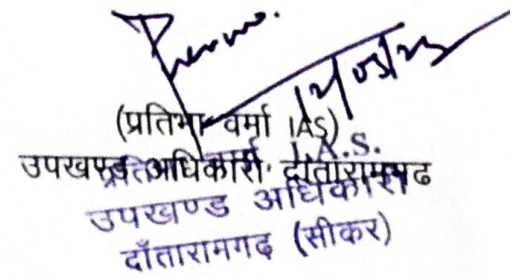 (प्रतिभा वर्मा IAS)
उपखण्ड अधिकारी दांतारामगढ
I.A.S.
उपखण्ड अधिकारी
दाँतारामगढ (सीकर)